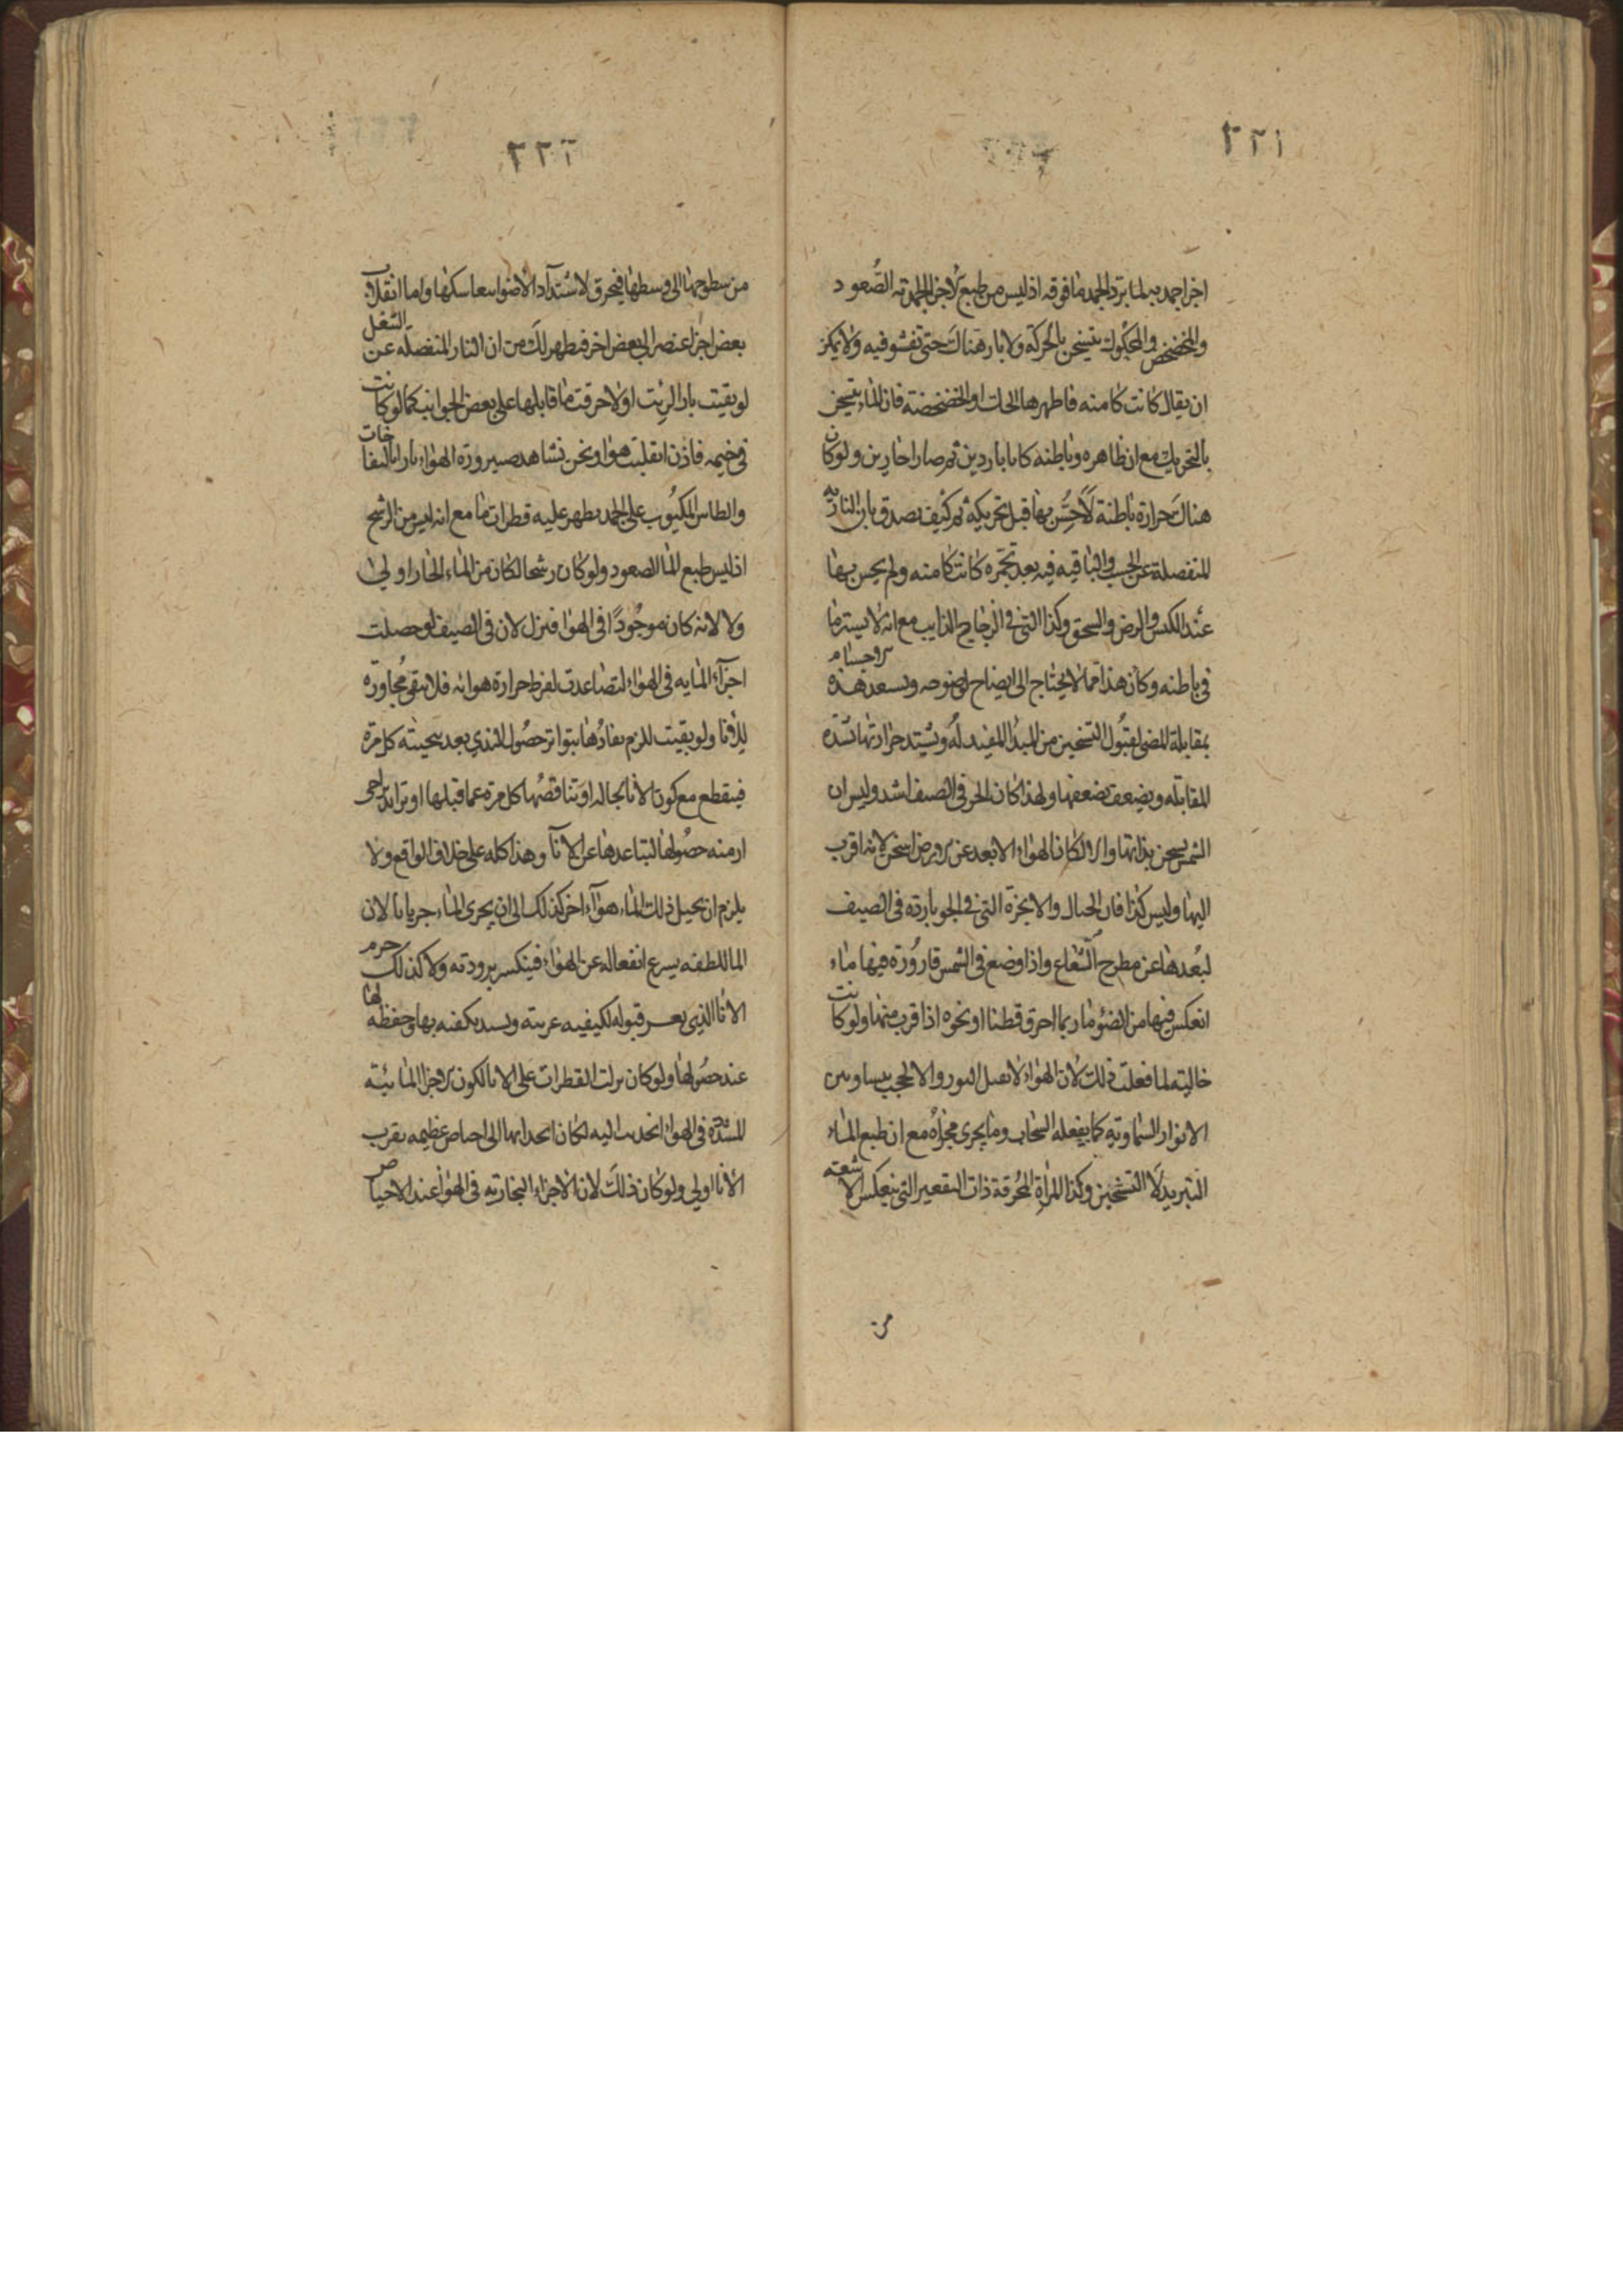 ٢٢١
اجزا جمديه لما برد الجمد ما فوقه اذ ليس من طبع الاجزا الجمديه الصُعود
والمخضخض والمحكوك يتسخن بالحركة ولا نار هناك حتى تفشو فيه ولا يمكن
ان يقال كانت كامنه فاظهرها الحك او الخضخضة فان الماء يتسخن
بالتحريك مع ان ظاهره وباطنه كانا باردين ثم صارا حارين ولو كان
هناك حرارة باطنة لاَحُسَّ بها قبل تحريكه ثم كيف نصدق بان الناريه
المنفصلة عن الخشب والباقيه فيه بعد تجمره كانت كامنه ولم يحس بها
عند الكسر والرض والسحق وكذا التي في الزجاج الذايب مع انه لا يستر ما
في باطنه وكان هذا مما لا يحتاج الى ايضاح لوضوحه وتستعد هذه
بمقابلة المضى لقبول التسخين من المبدا المفيد له ويشتد حرارتها بشدة
المقابله ويضعف بضعفها ولهذا كان الحر في الصيف اشد وليس ان
الشمس يسخن بذاتها والا لكان الهواء الابعد عن الارض اسخن لانه اقرب
اليها وليس كذا فان الجبال والابخرة التي في الجو بارده في الصيف
لبُعدها عن مطرح الشعاع واذا وضع في الشمس قارُورة فيها ماء
انعكس فيها من الضوء ما ربما احرق قطنا او نحوه اذا قرب منها ولو كانت
خاليته لما فعلت ذلك لان الهواء لا يقبل النور والا لحجب بيننا وبين
الانوار السماويه كما يفعله السحاب وما يجري مجراه مع ان طبع الماء
التبريد لا التسخين وكذا المراة المُحرقة ذات التقعير التي ينعكس الاشعته
من
٢٢٢
من سطوحها الى وسطها فيحرق لاشتداد الاضوا بانعكاسها واما انقلاب
بعض اجزا عنصر الى بعض اخر فيظهر لك من ان النار المنفصله عن الشعل
لو بقيت نارا لرئت او لاحرقت ما قابلها على بعض الجوانب كما لو كانت
في خيمه فاذن انقلبت هواء ونحن نشاهد صيرورة الهواء نارا بالنفاخات
والطاس المكبوب على الجمد يظهر عليه قطرات ما مع انه ليس من الرشح
اذ ليس طبع الما الصعود ولو كان رشحا لكان من الماء الحار اولى
ولا لانه كان موجُودًا في الهواء فنزل لان في الصيف لو حصلت
اجزاء المائيه في الهواء لتصاعدت لفرط حرارة هوائه فلا يبقى مُجاورة
للانا ولو بقيت للزم نفادُها بتواتر حصُول الندي بعد تنحيته كل مرة
فينقطع مع كون الانا بحاله او تناقصُها كل مرة عما قبلها او تزايد تراخي
ازمنه حصُولها لتباعدها عن الانآ وهذا كله على خلاف الواقع ولا
يلزم ان يحيل ذلك الماء هوآء اخر كذلك الى ان يجري الماء جريانا لان
الما للطفه يسرع انفعاله عن الهواء فينكسر برودته ولا كذلك جرم
الانا الذي يعسر قبوله لكيفيه غريبه ويشتد تكيفه بها وحفظه لها
عند حصُولها ولو كان نزلت القطرات على الانا لكون الاجزا المائيته
المنبثّة في الهواء انجذبت اليه لكان انجذابها الى احياض عظيمه بقرب
الانا اولى ولو كان ذلك لان الاجزاء البخاريه في الهواء عند الاحياض